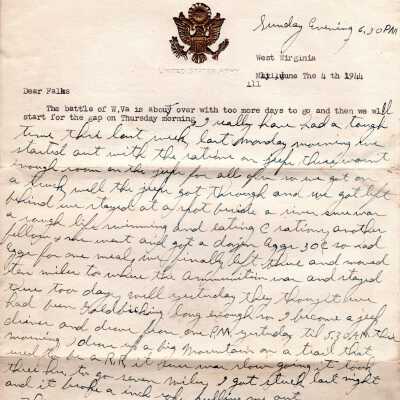 Sunday Evening 6.30 PM
UNITED STATES ARMY
West Virginia
June The 4 th 1944
Dear Falks
The battle of W,Va is about over with too more days to go and then we will
start for the gap on Thursday morning, I really have had a tough
time this last week, last Monday morning we
started out with the rations on jeeps there wasn't
enough room on the jeeps for all of us so we got on
a truck well the jeeps got through and we got left
behind we stayed at a spot beside a river sure was
a rough life swimming and eating C rations, another
fellow & me went and got a dozen eggs 30¢ so had
eggs for one meal, we finally left there and moved
ten miles to where the Ammunition was and stayed
there too days, well yesterday they thought we
had been Goldbricking long enough so I become a jeep
driver and drove from one P.M. yesterday til 5.30 AM this
morning I drove up a big Mountain on a trail that
used to be a R.R. it sure was slow going it took
three hrs. to go seven miles, I got stuck last night
and it broke a inch rope pulling me out